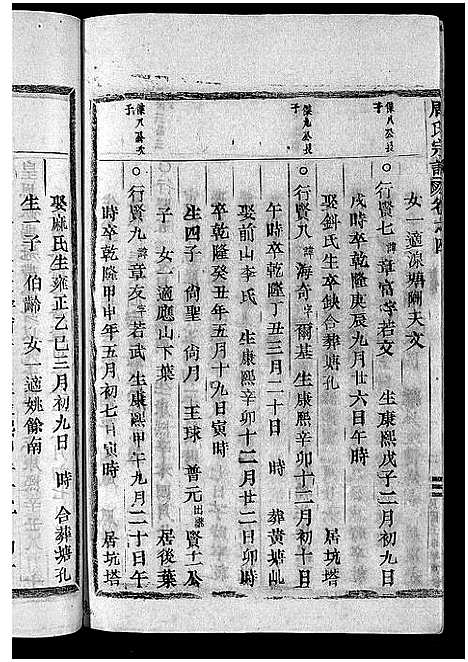 周氏宗譜
女一適源塘關天文
傑八公長子
○行賢七 諱章富字若文 生康熙戊子二月初九日
戌時卒乾隆庚辰九月廿六日午時 居坑塔
娶 氏生卒缺合葬塘孔
傑九公長子
○行賢八 諱海奇字爾基 生康熙辛卯十二月初十日
午時卒乾隆丁丑三月二十日 時 葬黃塘山
娶前山李氏 生康熙辛卯十二月廿二日卯時
卒乾隆癸丑年五月十九日寅時
生四子 尚聖 尚月 王球 普元出繼賢十一公
子 女一適應山下葉 居後葉
傑八公次子
○行賢九 諱章友字若武 生康熙甲午九月二十日午
時卒乾隆甲申年五月初七日寅時 居坑塔
娶麻氏生雍正乙巳三月初九日 時 合葬塘孔
生一子 伯齡 女一適姚餘南